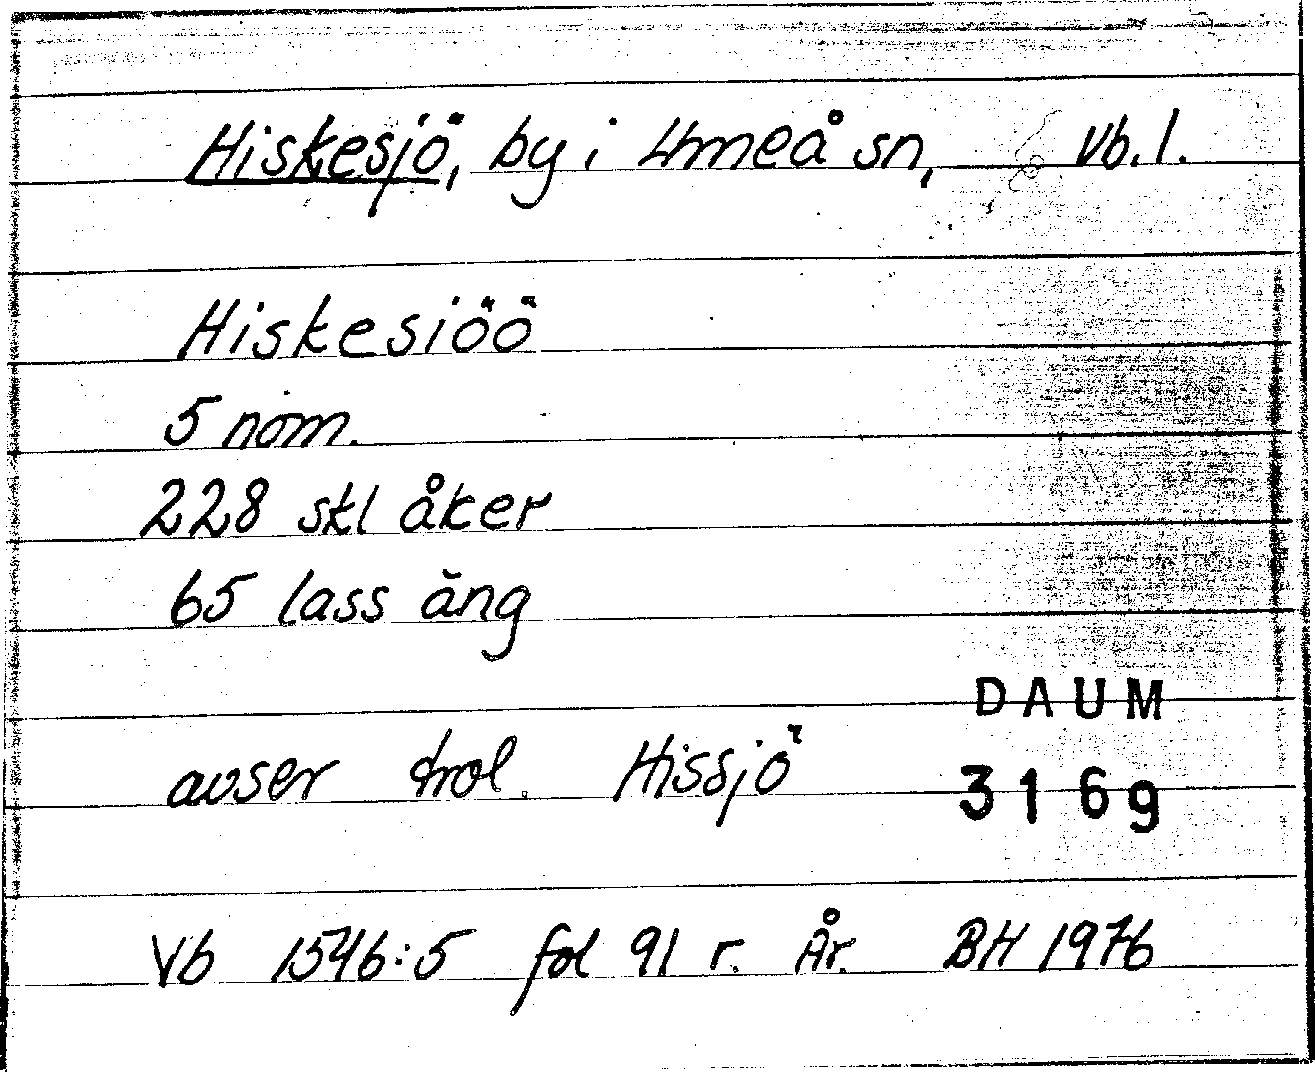 Hiskesjö, by i Umeå sn, Vb. l.
Hiskesiöö
5 nom.
228 skl åker
65 lass äng
DAUM
avser trol. Hissjö
3169
Vb 1546:5 fol 91 r. År. BH 1976